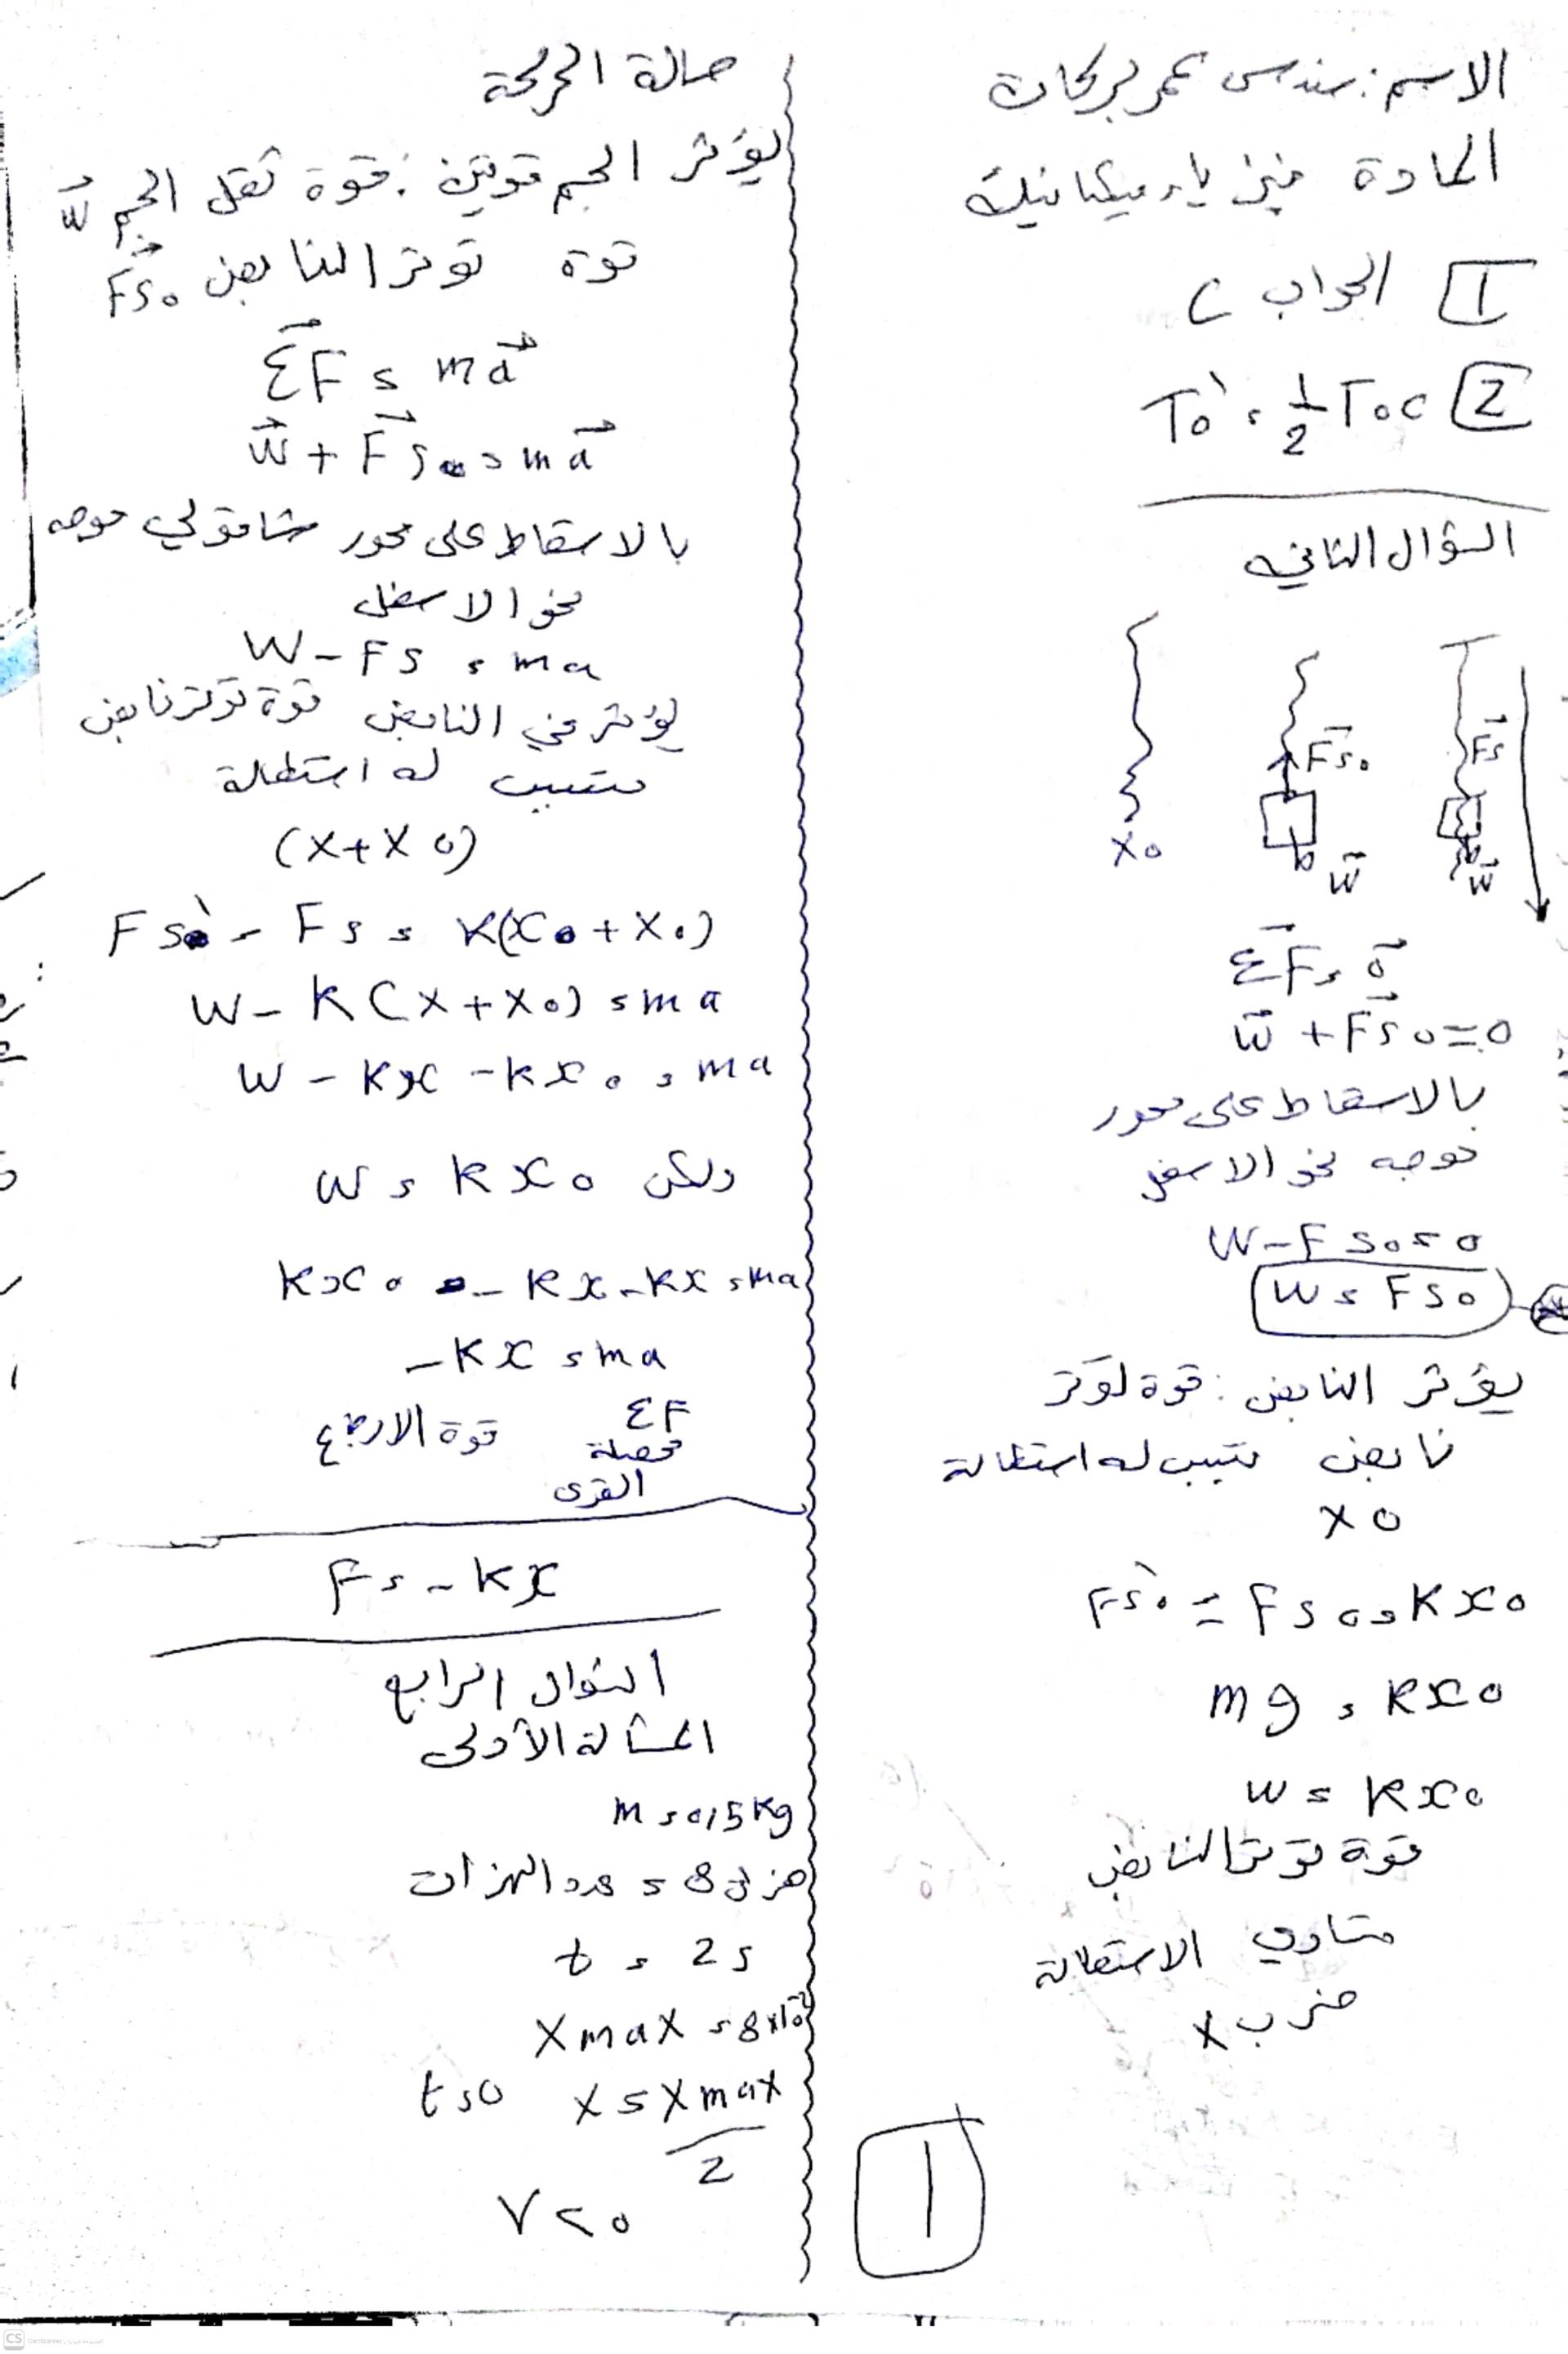 الاسم: سندس عمر بركات
المادة فيزياء ميكانيك
1 الجواب C
2 T0` = 1/2 T0 C
السؤال الثاني
Fs
Fs0
x0
W
W
ΣF = 0
W + Fs0 = 0
بالاسقاط على محور
موجه نحو الاسفل
W - Fs0 = 0
W = Fs0
يؤثر النابض: قوة توتر
نابض تسبب له استطالة
x0
Fs0` = Fs0 = K x0
mg = K x0
W = K x0
قوة توتر النابض
تساوي الاستطالة
ضرب x
1
حالة الحركة
يؤثر الجسم قوتين: قوة ثقل الجسم W
قوة توتر النابض Fs0
ΣF = ma
W + Fs = ma
بالاسقاط على محور شاقولي موجه
نحو الاسفل
W - Fs = ma
يؤثر في النابض قوة توتر نابض
تسبب له استطالة
(x + x0)
Fs` = Fs = K(x0 + x0)
W - K(x + x0) = ma
W - Kx - Kx0 = ma
ولكن W = K x0
Kx0 - Kx - Kx = ma
-Kx = ma
ΣF قوة الارجاع
محصلة
القوى
F = -Kx
السؤال الرابع
المسألة الأولى
m = 0,5 Kg
هزة 8 = عدد الهزات
t = 2 s
Xmax = 8 × 10⁻²
t = 0 x = Xmax/2
V < 0
CS CamScanner